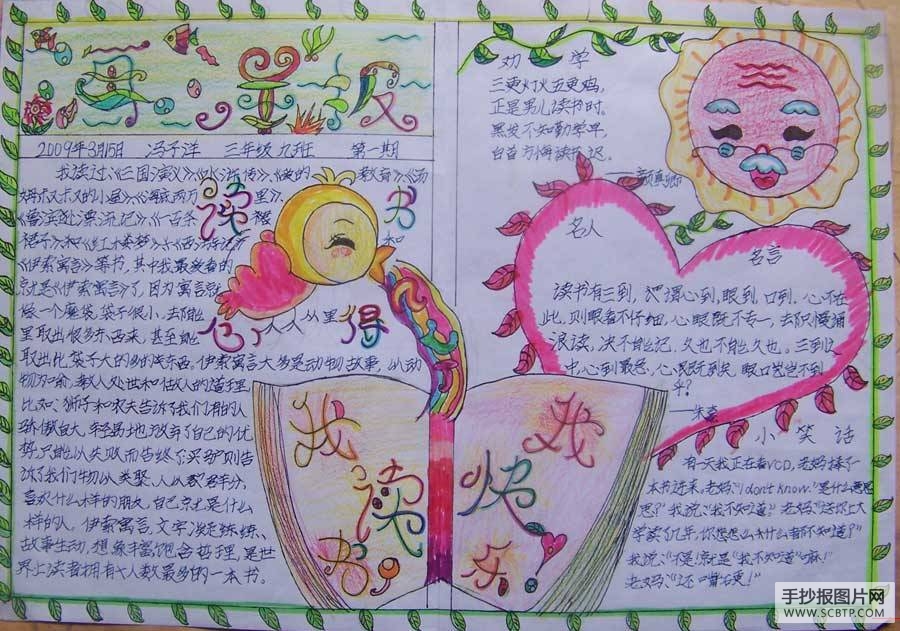 寻书报
2009年3月15日 冯子洋 三年级九班 第一期
读书心得
我读过《三国演义》《水浒传》《
》《海底两万里》、
《鲁滨逊漂流记》《一百条裙
裙子》和《红楼梦》《西游记》和
《伊索寓言》等书,其中我最爱看的
就是《伊索寓言》了,因为寓言就
像一个魔袋,袋子很小,却能从里
里取出很多东西来,甚至能
取出比袋子大的多的东西。伊索寓言大多是动物故事,以动
物为喻,教人处世和做人的道理
比如:狮子和农夫告诉了我们有的人
骄傲自大,轻易地放弃了自己的优
势,只能以失败而告终了买驴则告
诉了我们物以类聚,人以群分,
喜欢什么样的朋友,自己就是什么
样的人。伊索寓言,文字凝练、
故事生动,想象丰富饱含哲理,是世
界上读者拥有人数最多的一本书。
我读书
我快乐
劝学
三更灯火五更鸡,
正是男儿读书时。
黑发不知勤学早,
白首方悔读书迟。
——颜真卿
名人
名言
读书有三到,谓心到,眼到,口到。心不在
此,则眼看不仔细,心眼既不专一,去只慢诵
浪读,决不能记,久也不能久也。三到之
中,心到最急,心既到矣,眼口岂不到
乎?
——朱熹
小笑话
有一天我正在看VCD,老妈捧了一
本书进来,老妈:"I don't know."是什么意思
思?"我说:"我不知道"老妈:"送你上大
学读了几年,你怎么什么都不知道?"
我说:"不是!就是"我不知道"嘛!"
老妈:"还嘴硬!"
手抄报图片网
WWW.SCBTP.COM